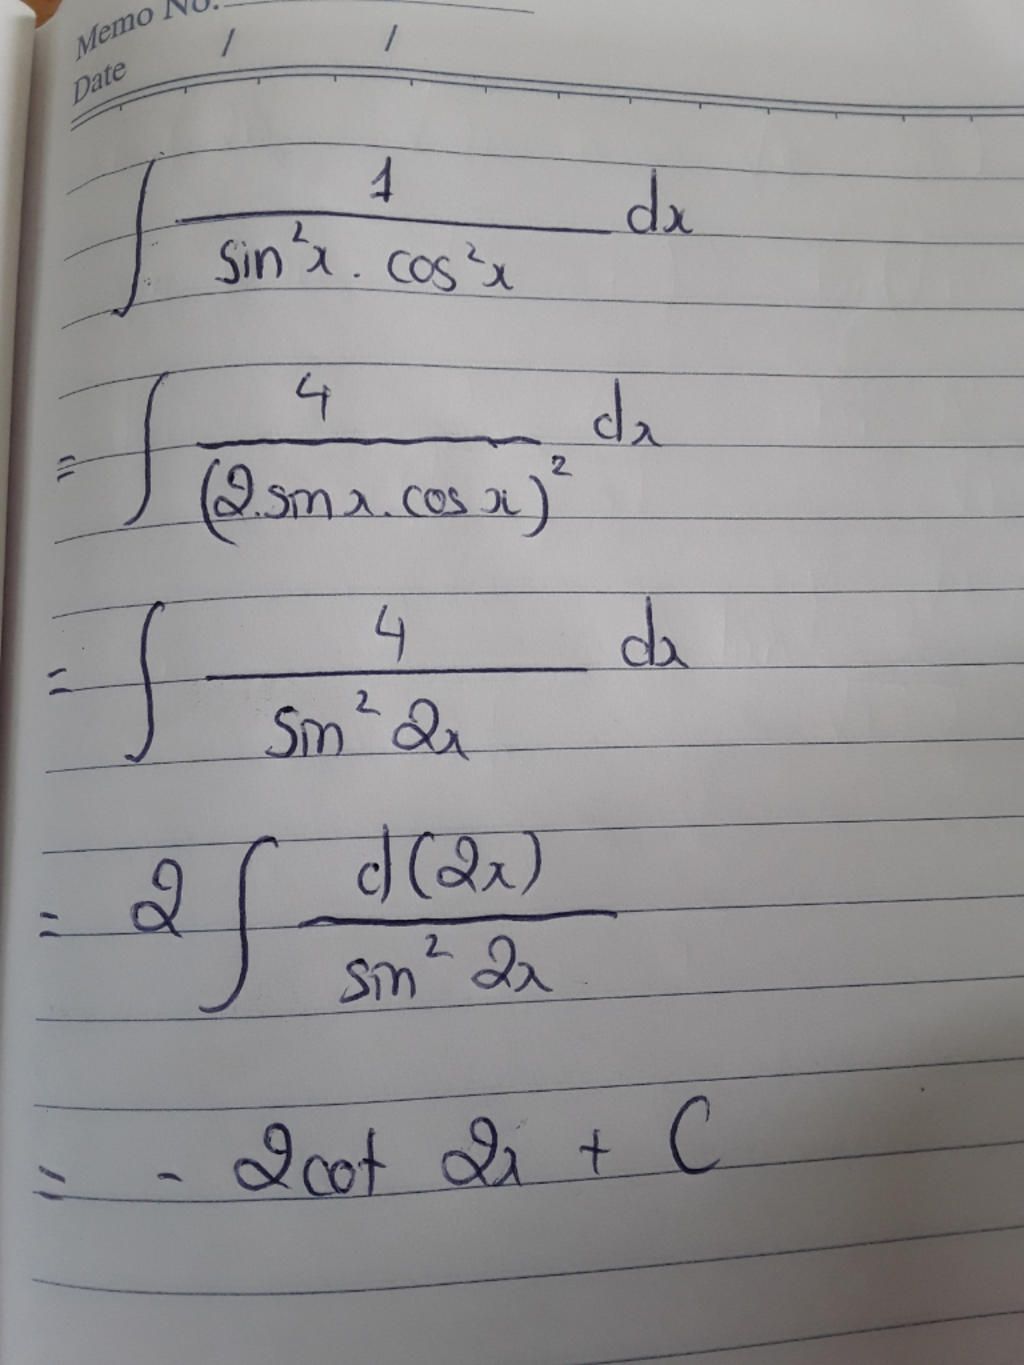 Memo No.
Date / /
∫ 1/(sin²x . cos²x) dx
= ∫ 4/(2.sinx.cosx)² dx
= ∫ 4/(sin² 2x) dx
= 2 ∫ d(2x)/(sin² 2x)
= - 2cot 2x + C